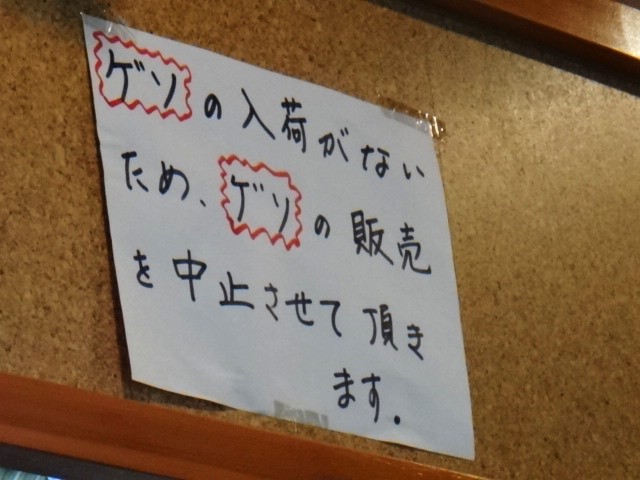 ゲソの入荷がない
ため、ゲソの販売
を中止させて頂き
ます.